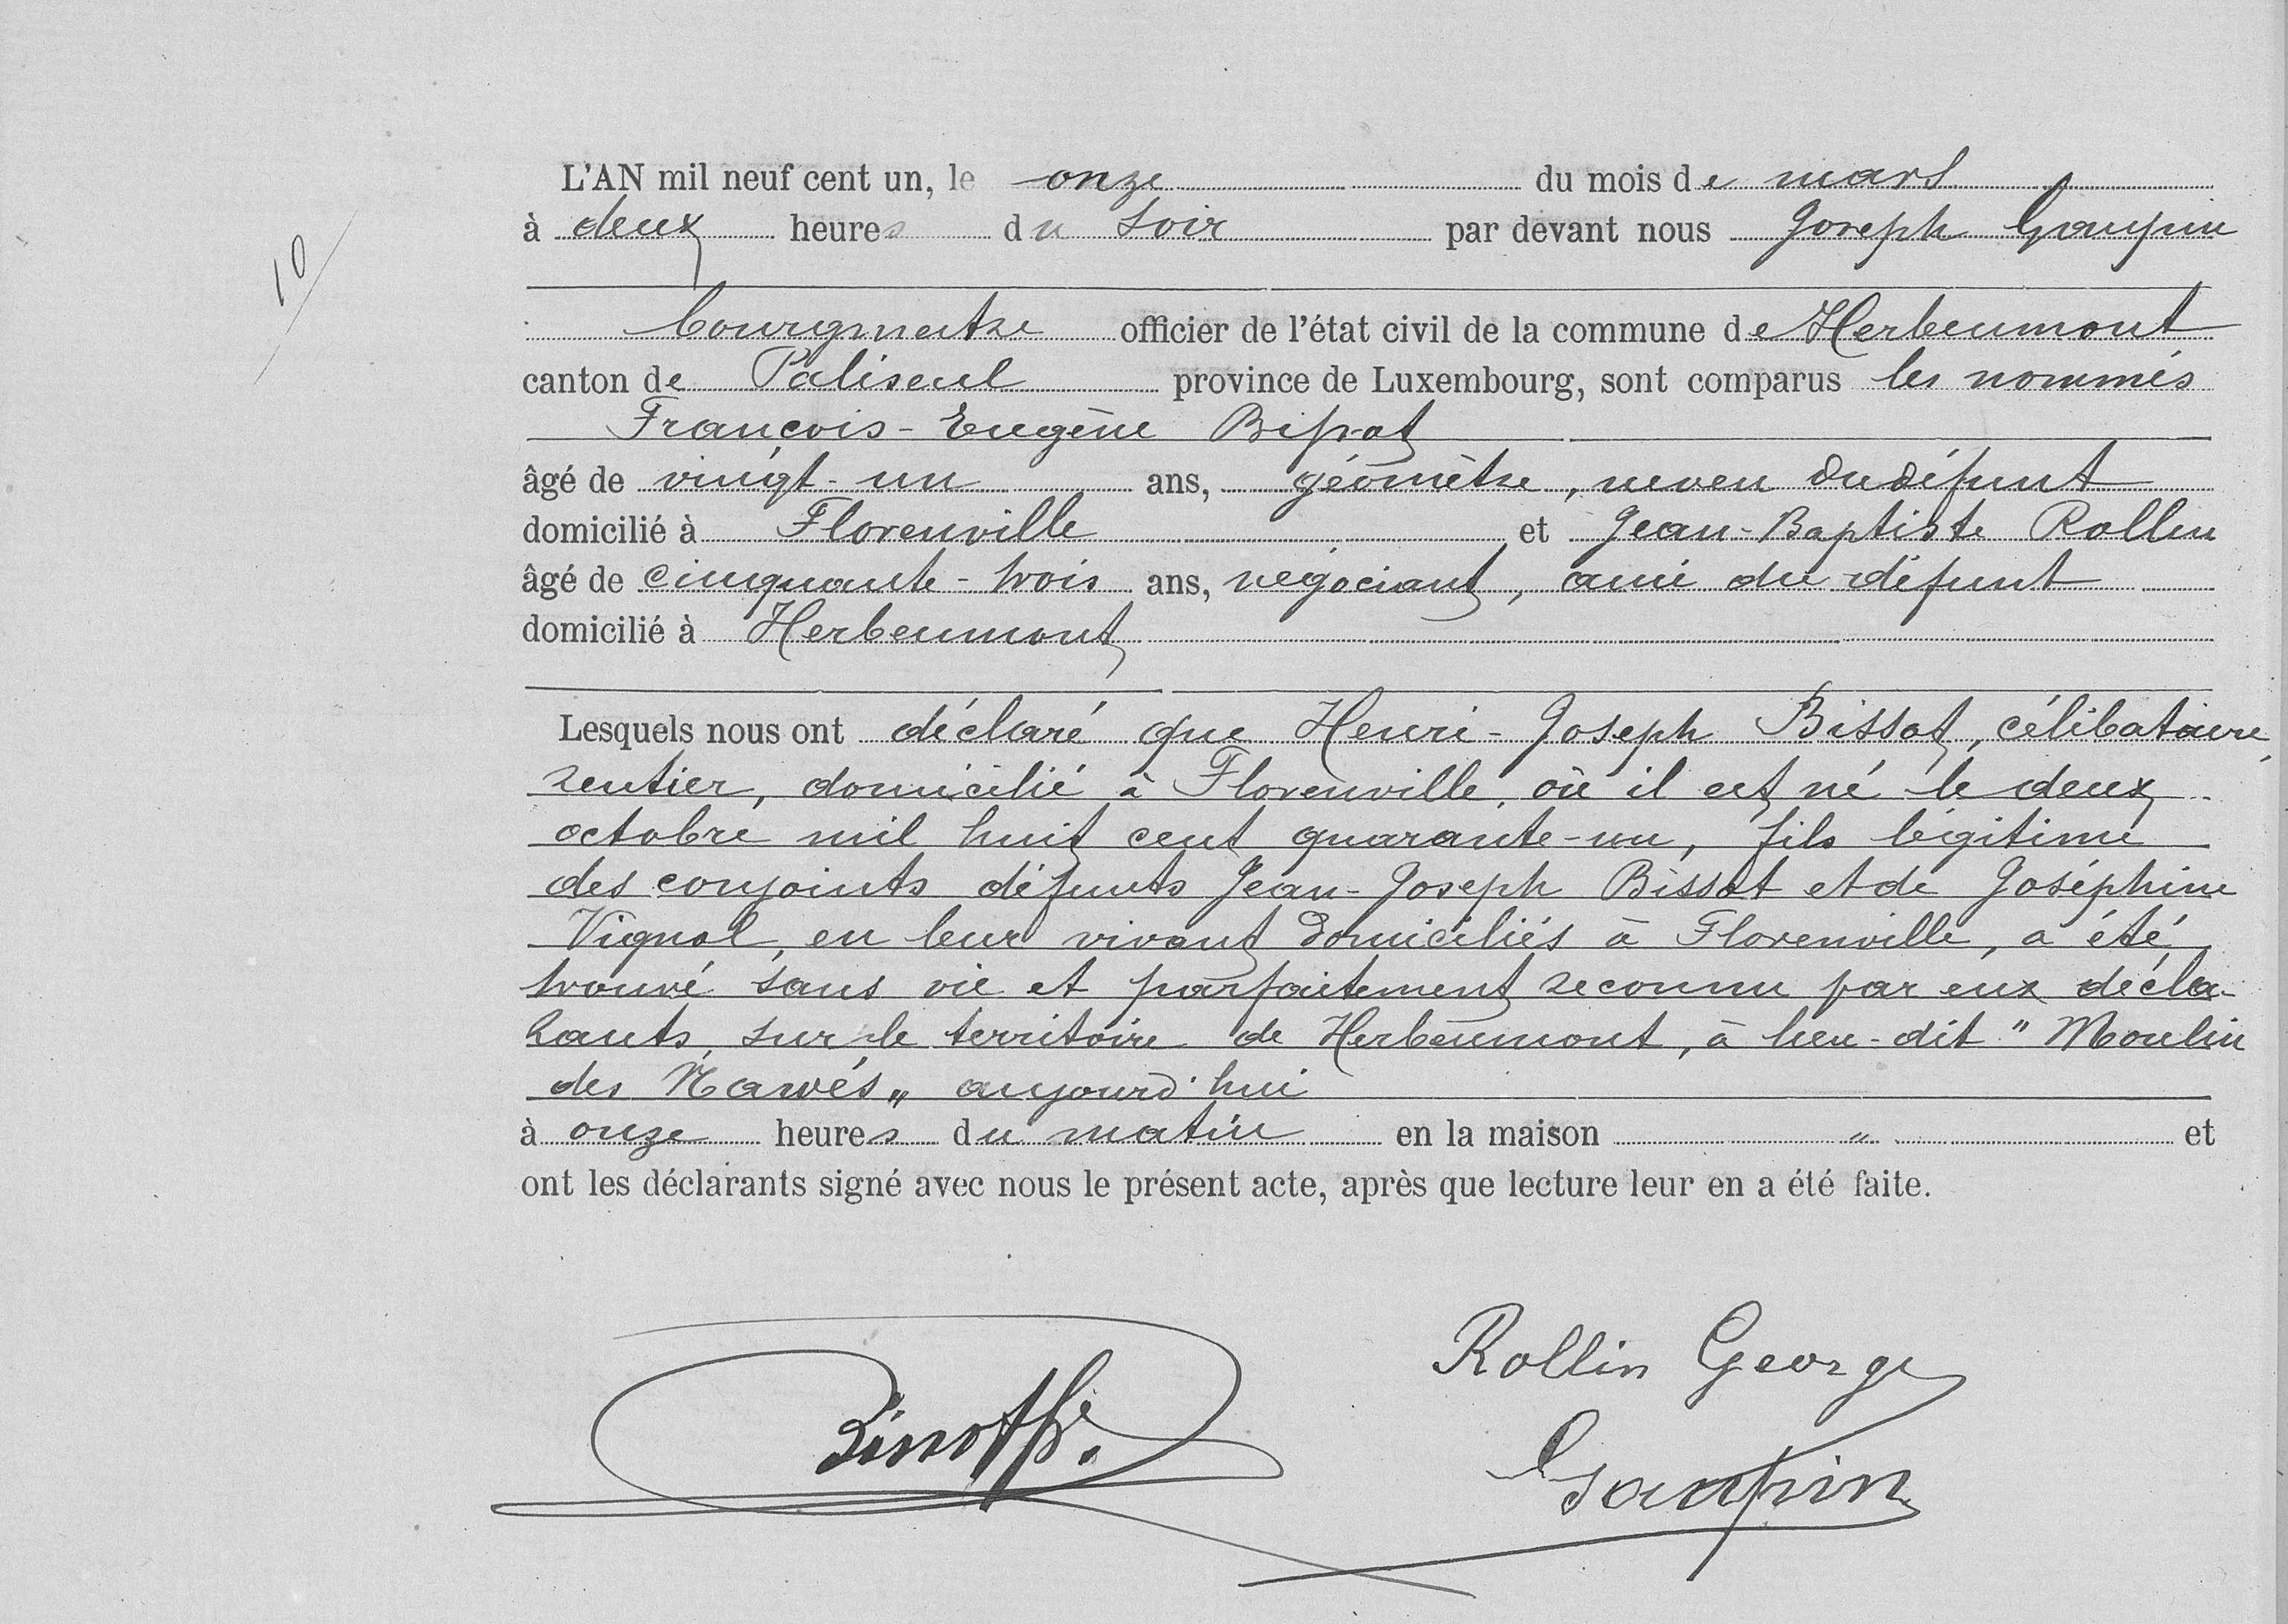 10
L'AN mil neuf cent un, le onze du mois de mars
à deux heures du soir par devant nous Joseph Gaupin
bourgmestre officier de l'état civil de la commune de Herbeumont
canton de Paliseul province de Luxembourg, sont comparus les nommés
François-Eugène Bissot
âgé de vingt-un ans, géomètre, neveu du défunt
domicilié à Florenville et Jean-Baptiste Rollin
âgé de cinquante-trois ans, négociant, ami du défunt
domicilié à Herbeumont
Lesquels nous ont déclaré que Henri-Joseph Bissot, célibataire,
rentier, domicilié à Florenville, où il est né le deux
octobre mil huit cent quarante-un, fils légitime
des conjoints défunts Jean-Joseph Bissot et de Joséphine
Vignol, en leur vivant domiciliés à Florenville, a été
trouvé sans vie et parfaitement reconnu par eux décla-
rants sur le territoire de Herbeumont, à lieu-dit "Moulin
des Nawés„ aujourd'hui
à onze heures du matin en la maison „ et
ont les déclarants signé avec nous le présent acte, après que lecture leur en a été faite.
Rollin George
Gaupin